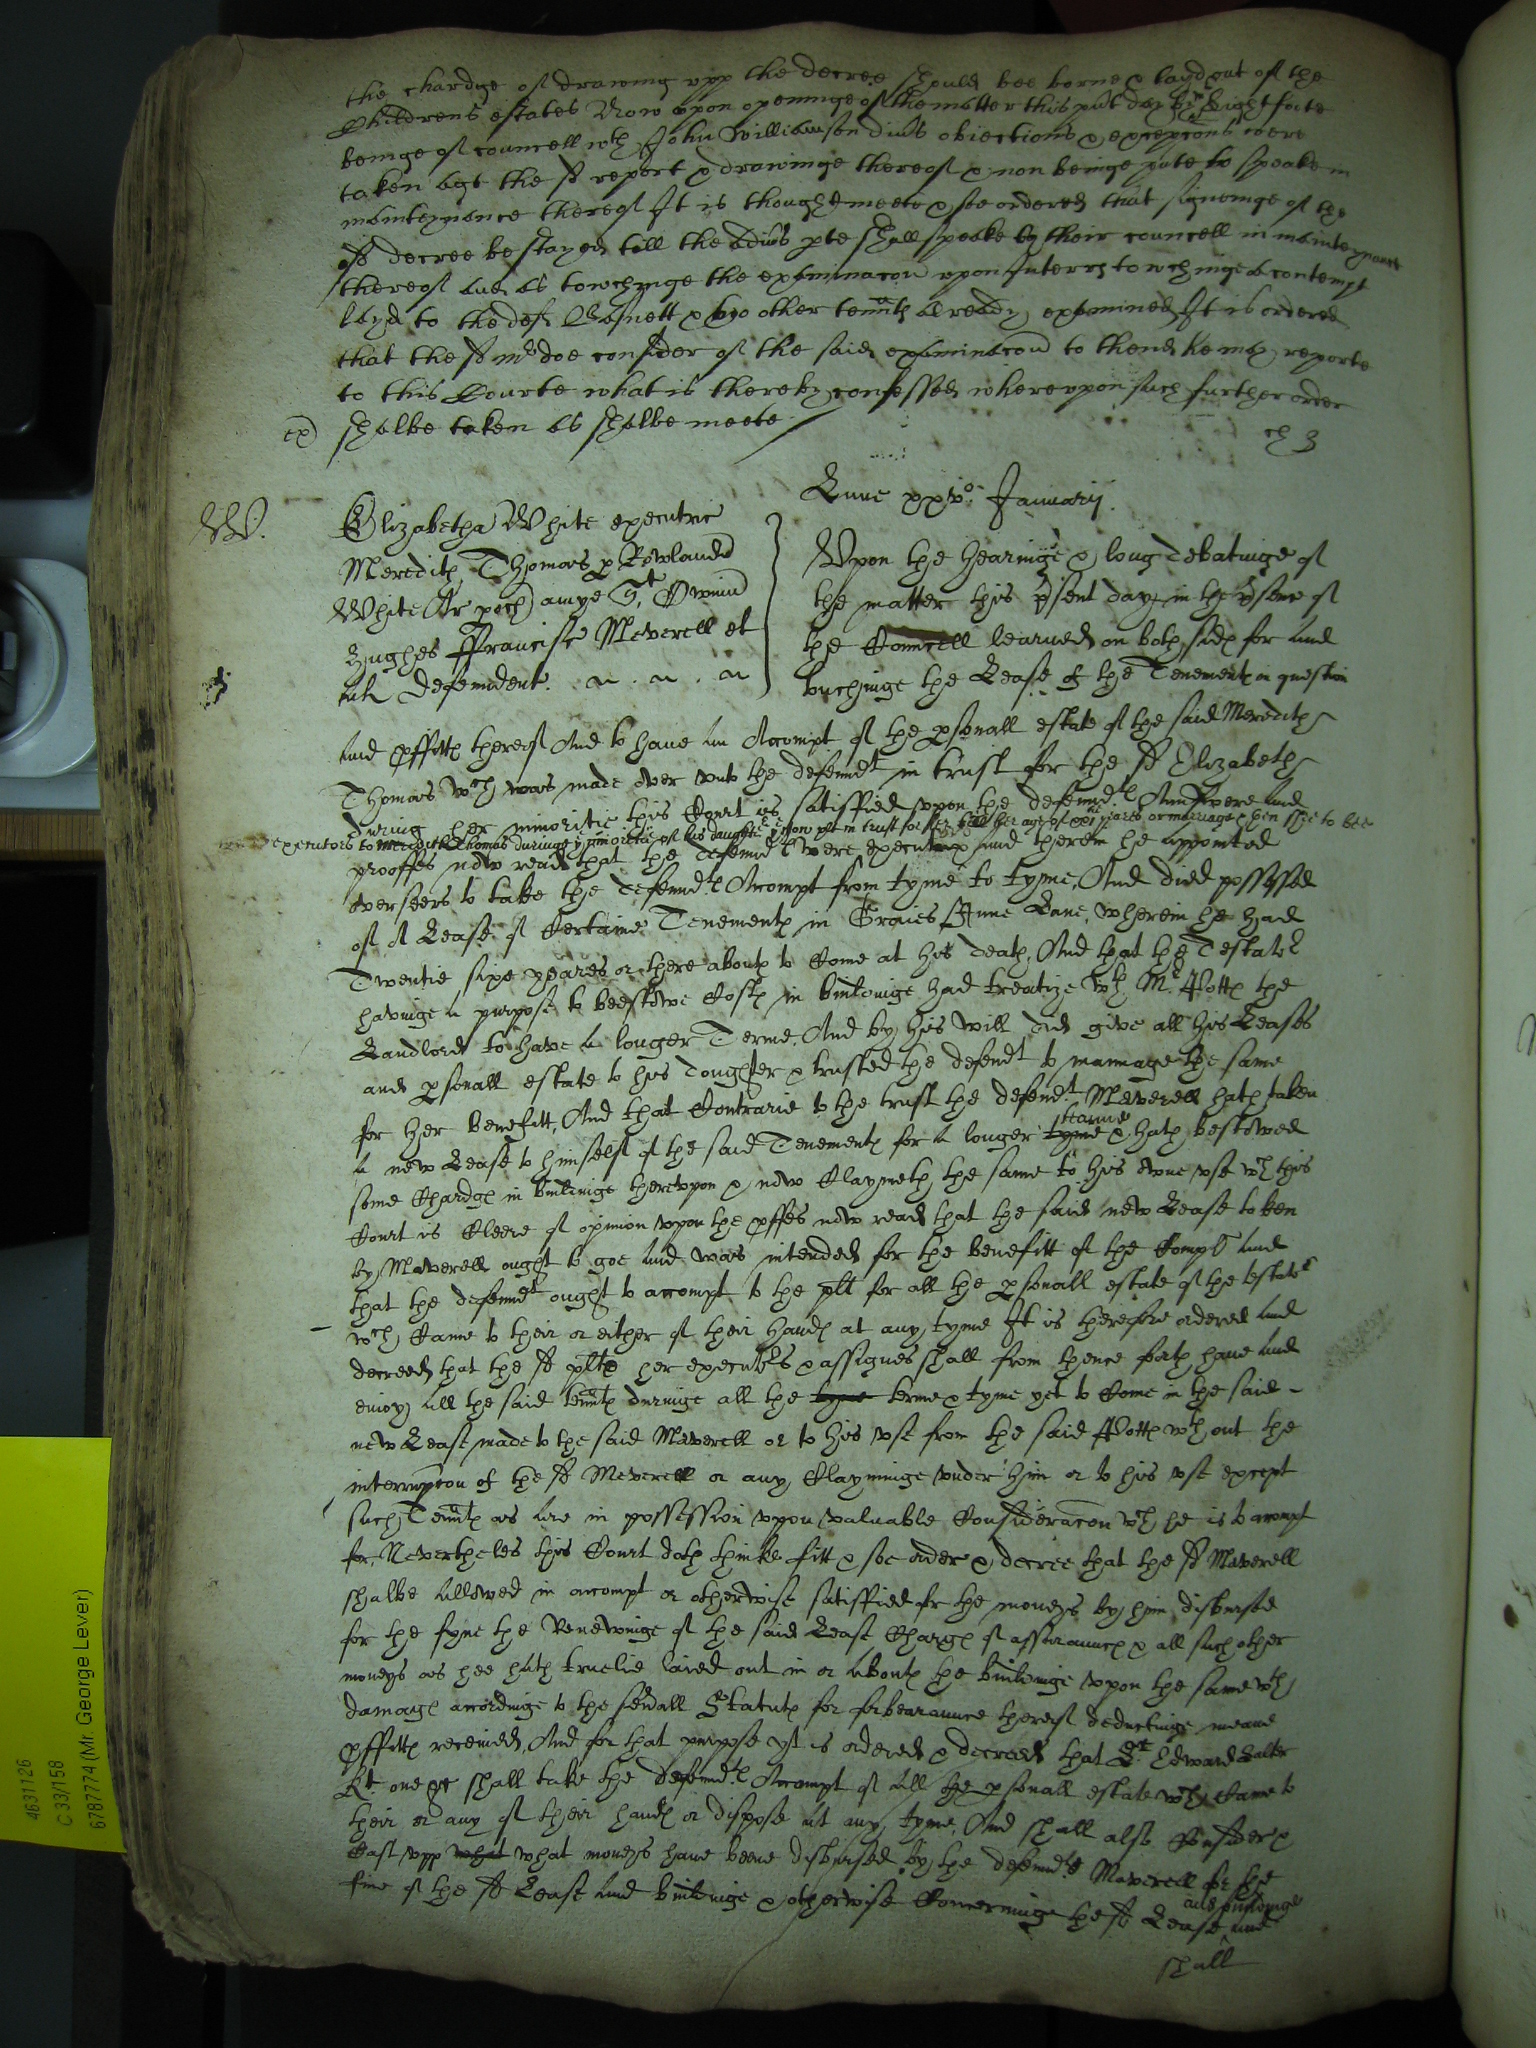 the chardge of drawing upp the decree should bee borne & layd out of the
Childrens estates Now upon openinge of the matter this pnt day by Mr Lightfoote
beinge of councell wth John Williamson divs obiections & excepcons were
taken agt the sd report & drawinge thereof & non beinge pnte to speake in
mainteynance thereof It is thought meete & soe ordered that signeinge of the
sd decree be stayed till the advs pte shall speake by their councell in mainteynance
thereof and as towchinge the examinacon upon Interr towchinge a contempt
layd to the deft & two other tennts already examined It is ordered
that the sd mr doe consider of the said examinacon to thend he may reporte
to this Courte what is thereby confessed whereupon such further order
ex shalbe taken as shalbe meete
Lune xxvo Januarij
W.
Elizabetha White executric
Meredith Thomas & Rowland
White Ar amye Qt Owinu
Hughes ffrancisc Meverell et
al defendent
Upon the hearinge & long debatinge of
the matter this psent day in the psence of
the Councell learned on both sides for and
touchinge the Lease of the Tenements in question
and pffitts thereof And to have an Accompt of the psonall estate of the said Meredith
Thomas wch was made over unto the defendt in trust for the sd Elizabeth
during her minoritie this Court is satisfied upon the defendts Aunswere and
executors to Meredith Thomas duringe ye minoritie of his daughter ye now plt in trust for her till her age of xxi yeares or marriage & then she to bee
prooffes now read that the defendts were executors and therein he appointed
overseers to take the defendts Accompt from tyme to tyme, And died possessed
of A Lease of Certaine Tenements in Graies Inne Lane, wherein he had
Twentie sixe yeares or there abouts to Come at his death, And that the Testator
havinge a purpose to beestowe Costs in buildinge had treatize wth Mr Potts the
Landlord to have a longer Terme, And by his will did give all his Leases
and psonall estate to his doughter & trusted the defendt to mannage the same
for her benefitt, And that Contrarie to the trust the defendt Meverell hath taken
a new Lease to himself of the said Tenements for a longer tyme tearme & hath bestowed
some Chardges in buildinge thereupon & now Claymeth the same to his owne use wch this
Court is Cleere of opinion upon the pffes now read that the said new Lease taken
by Meverell ought to goe and was intended for the benefitt of the Complt and
that the defendt ought to accompt to the plt for all the psonall estate of the testator
wch Came to their or either of their hands at any tyme It is therefore ordered and
decreed that the sd plt her executors & assignes shall from thence forth have and
enioy all the said tennts duringe all the tyme terme & tyme yet to Come in the said
new Lease made to the said Meverell or to his use from the said Potts wthout the
interrupcon of the sd Meverell or any Clayminge under him or to his use except
such Tennts as are in possession upon valuable Consideracon wch he is to accompt
for, Neverthelesse this Court doth thinke fitt & soe order & decree that the sd Meverell
shalbe allowed in accompt or otherwise satisfied for the moneys by him disbursed
for the fyne the Renewinge of the said Lease Charges of assurannces & all such other
moneys as hee hath truelie laied out in or abouts the buildinge upon the same wth
damages accordinge to the sevall Statuts for forbearannce thereof deductinge meane
pffitts received, And for that purpose yt is ordered & decreed that Sr Edward Salter
Kt one &c shall take the defendts Accompt of all the psonall estate wch Came to
their or any of their hands or dispose at any tyme, And shall also Consider &
Cast upp what what moneys have beene disbursed by the defendt Meverell for the
fine of the sd Lease and buildinge & otherwise Concerninge the sd Lease and and buildinge
shall
4631126
C 33/158
6787774 (Mr. George Lever)